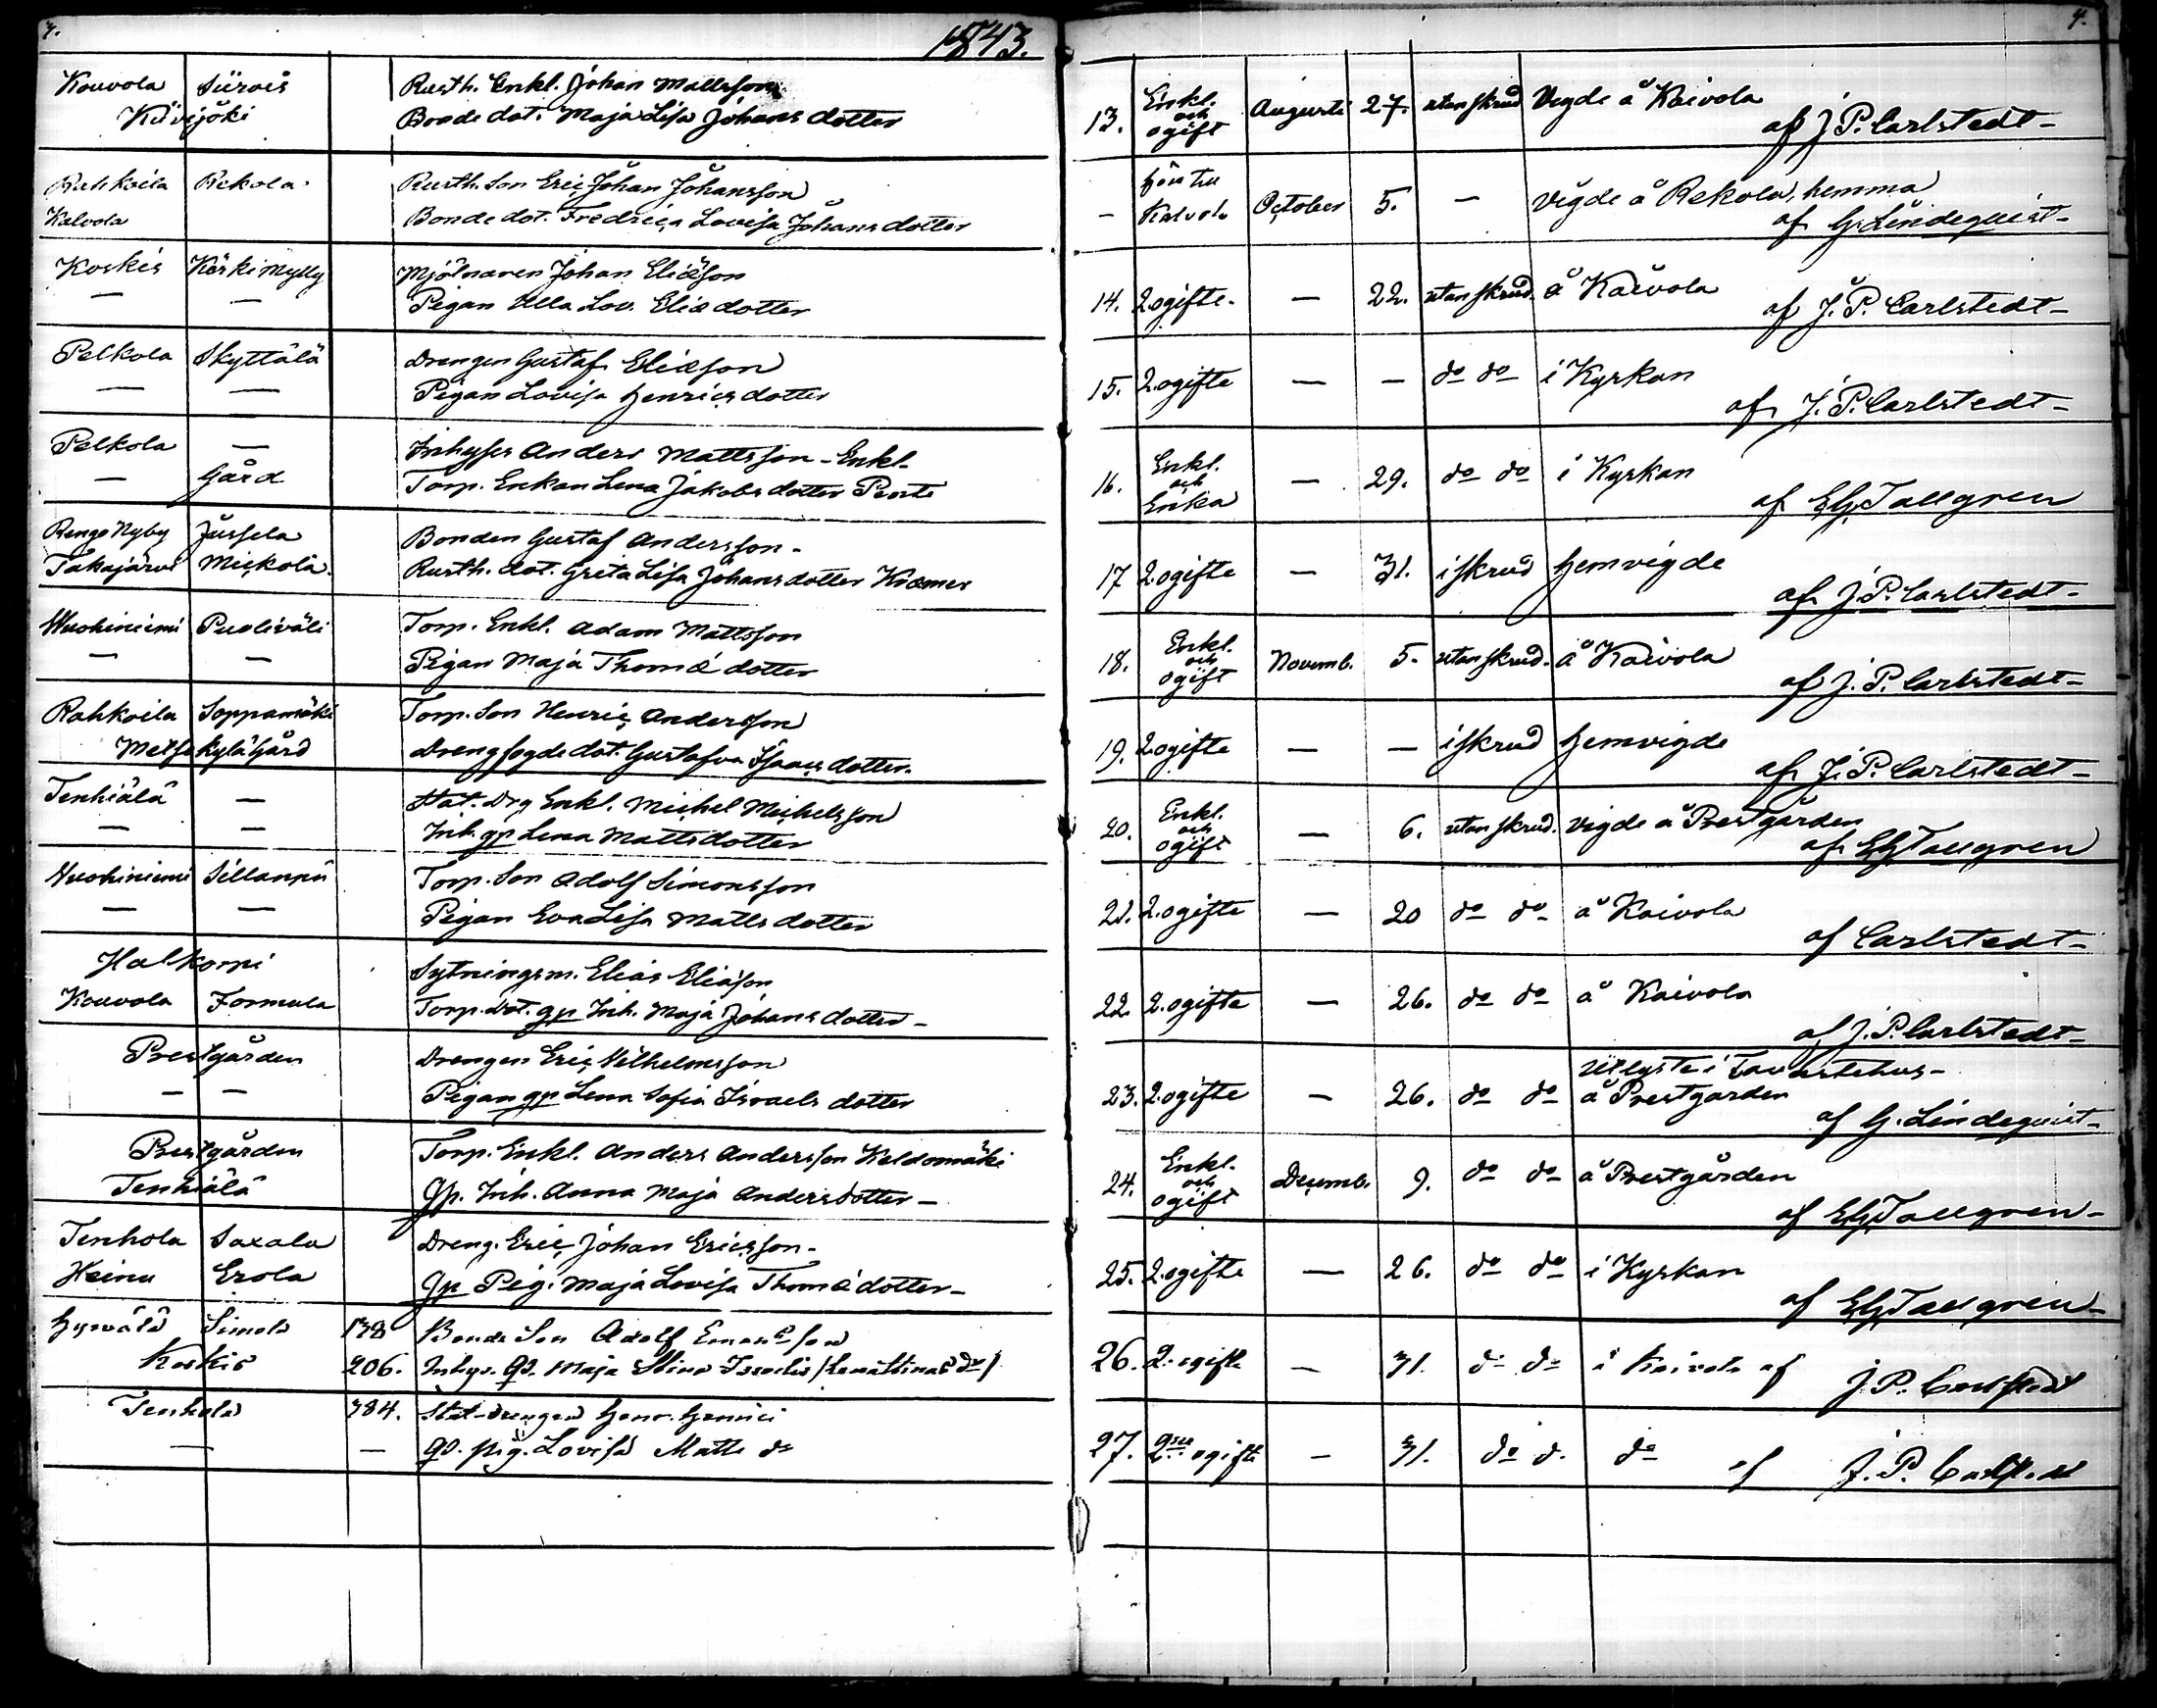 4.
1843.
4.
Kouvola Siirois Rusth. Enkl. Johan Mattsson
Kövijöki Bonde dot. Maja Lisa Johans dotter
13. Enkl. och ogift Augusti 27. utan skrud Vigde å Kaivola
af J. P. Carlstedt-
Rahkoila Rekola. Rusth. Son Eric Johan Johansson
Kalvola Bonde dot. Fredrica Lovisa Johans dotter
— hör till Kalvola October 5. — Vigde å Rekola, hemma
af G. Lindequist-
Koskis Koskimylly Mjölnaren Johan Eliæson
— — Pigan Ulla Lov. Eliæ dotter
14. 2 ogifte. — 22. utan skrud. å Kaivola
af J. P. Carlstedt-
Pelkola Skyttälä Drengen Gustaf Eliæson
— — Pigan Lovisa Henrics dotter
15. 2 ogifte — — do do i Kyrkan
af J. P. Carlstedt-
Pelkola — Inhyses Anders Mattsson - Enkl.
— Gård Torp. Enkan Lena Jakobs dotter
16. Enkl. och Enka — 29. do do i Kyrkan
af EG Tallgren
Rengo Nyby Jussela Bonden Gustaf Andersson-
Takajärvi Mickola. Rusth. dot. Greta Lisa Johans dotter
17 2 ogifte — 31. i skrud hemvigde
af J. P. Carlstedt-
Wuohiniemi Puoliväli Torp. Enkl. Adam Mattsson
— — Pigan Maja Thomæ dotter
18. Enkl. och ogift Novemb. 5. utan skrud. å Kaivola
af J. P. Carlstedt-
Rahkoila Soppamäki Torp. Son Henric Andersson
Metsäkylä Gård Drengfogde dot. Gustafva Isaacs dotter.
19. 2 ogifte — — i skrud hemvigde
af J. P. Carlstedt-
Tenhiälä — Stat. Drg Enkl. Michel Michelsson
— — Inh. qp Lena Matts dotter
20. Enkl. och ogift — 6. utan skrud. vigde å Prestgården
af EG Tallgren
Wuohiniemi Sillanpä Torp. Son Adolf Simonsson
— — Pigan Eva Lisa Matts dotter
21. 2 ogifte — 20 do do å Kaivola
af Carlstedt-
Halkorpi Sytningsm. Elias Eliæson
Kouvola Formula Torp. dot. qp Inh. Maja Johans dotter-
22. 2 ogifte — 26. do do å Kaivola
af J. P. Carlstedt-
Prestgården Drengen Eric Vilhelmsson
— — Pigan qp Lena Sofia Israels dotter
23. 2 ogifte — 26. do do utlyste i Tavastehus-
å Prestgården
af G. Lindequist-
Prestgården Torp. Enkl. Anders Andersson
Tenhiälä Qp. Inh. Anna Maja Anders dotter-
24. Enkl. och ogift Decemb. 9. do do å Prestgården
af EG Tallgren-
Tenhola Saxala Dreng. Eric Johan Ericsson-
Heinu Erola Qp Pig. Maja Lovisa Thomæ dotter-
25. 2 ogifte — 26. do do i Kyrkan
af EG Tallgren-
Hyrvälä Simola 138 Bonde Son Adolf
Koskis 206. Inhys. Qp. Maja Stina
26. 2 ogifte — 31. do do å Kaivola af J. P. Carlstedt
Tenhola 384. Stat-drengen Henr. Henrici
— — Qp. pig. Lovisa Matts dr
27. 2ne ogifte — 31. do do do af J. P. Carlstedt